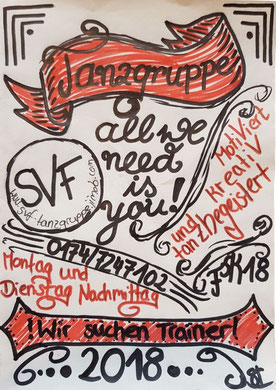 Tanzgruppe
all we
need
is
you!
SVF
www.svf-tanzgruppe.jimdo.com
Motiviert
kreativ
und
tanzbegeistert
0174/7247102
Montag und
Dienstag Nachmittag
! Wir suchen Trainer!
...2018...